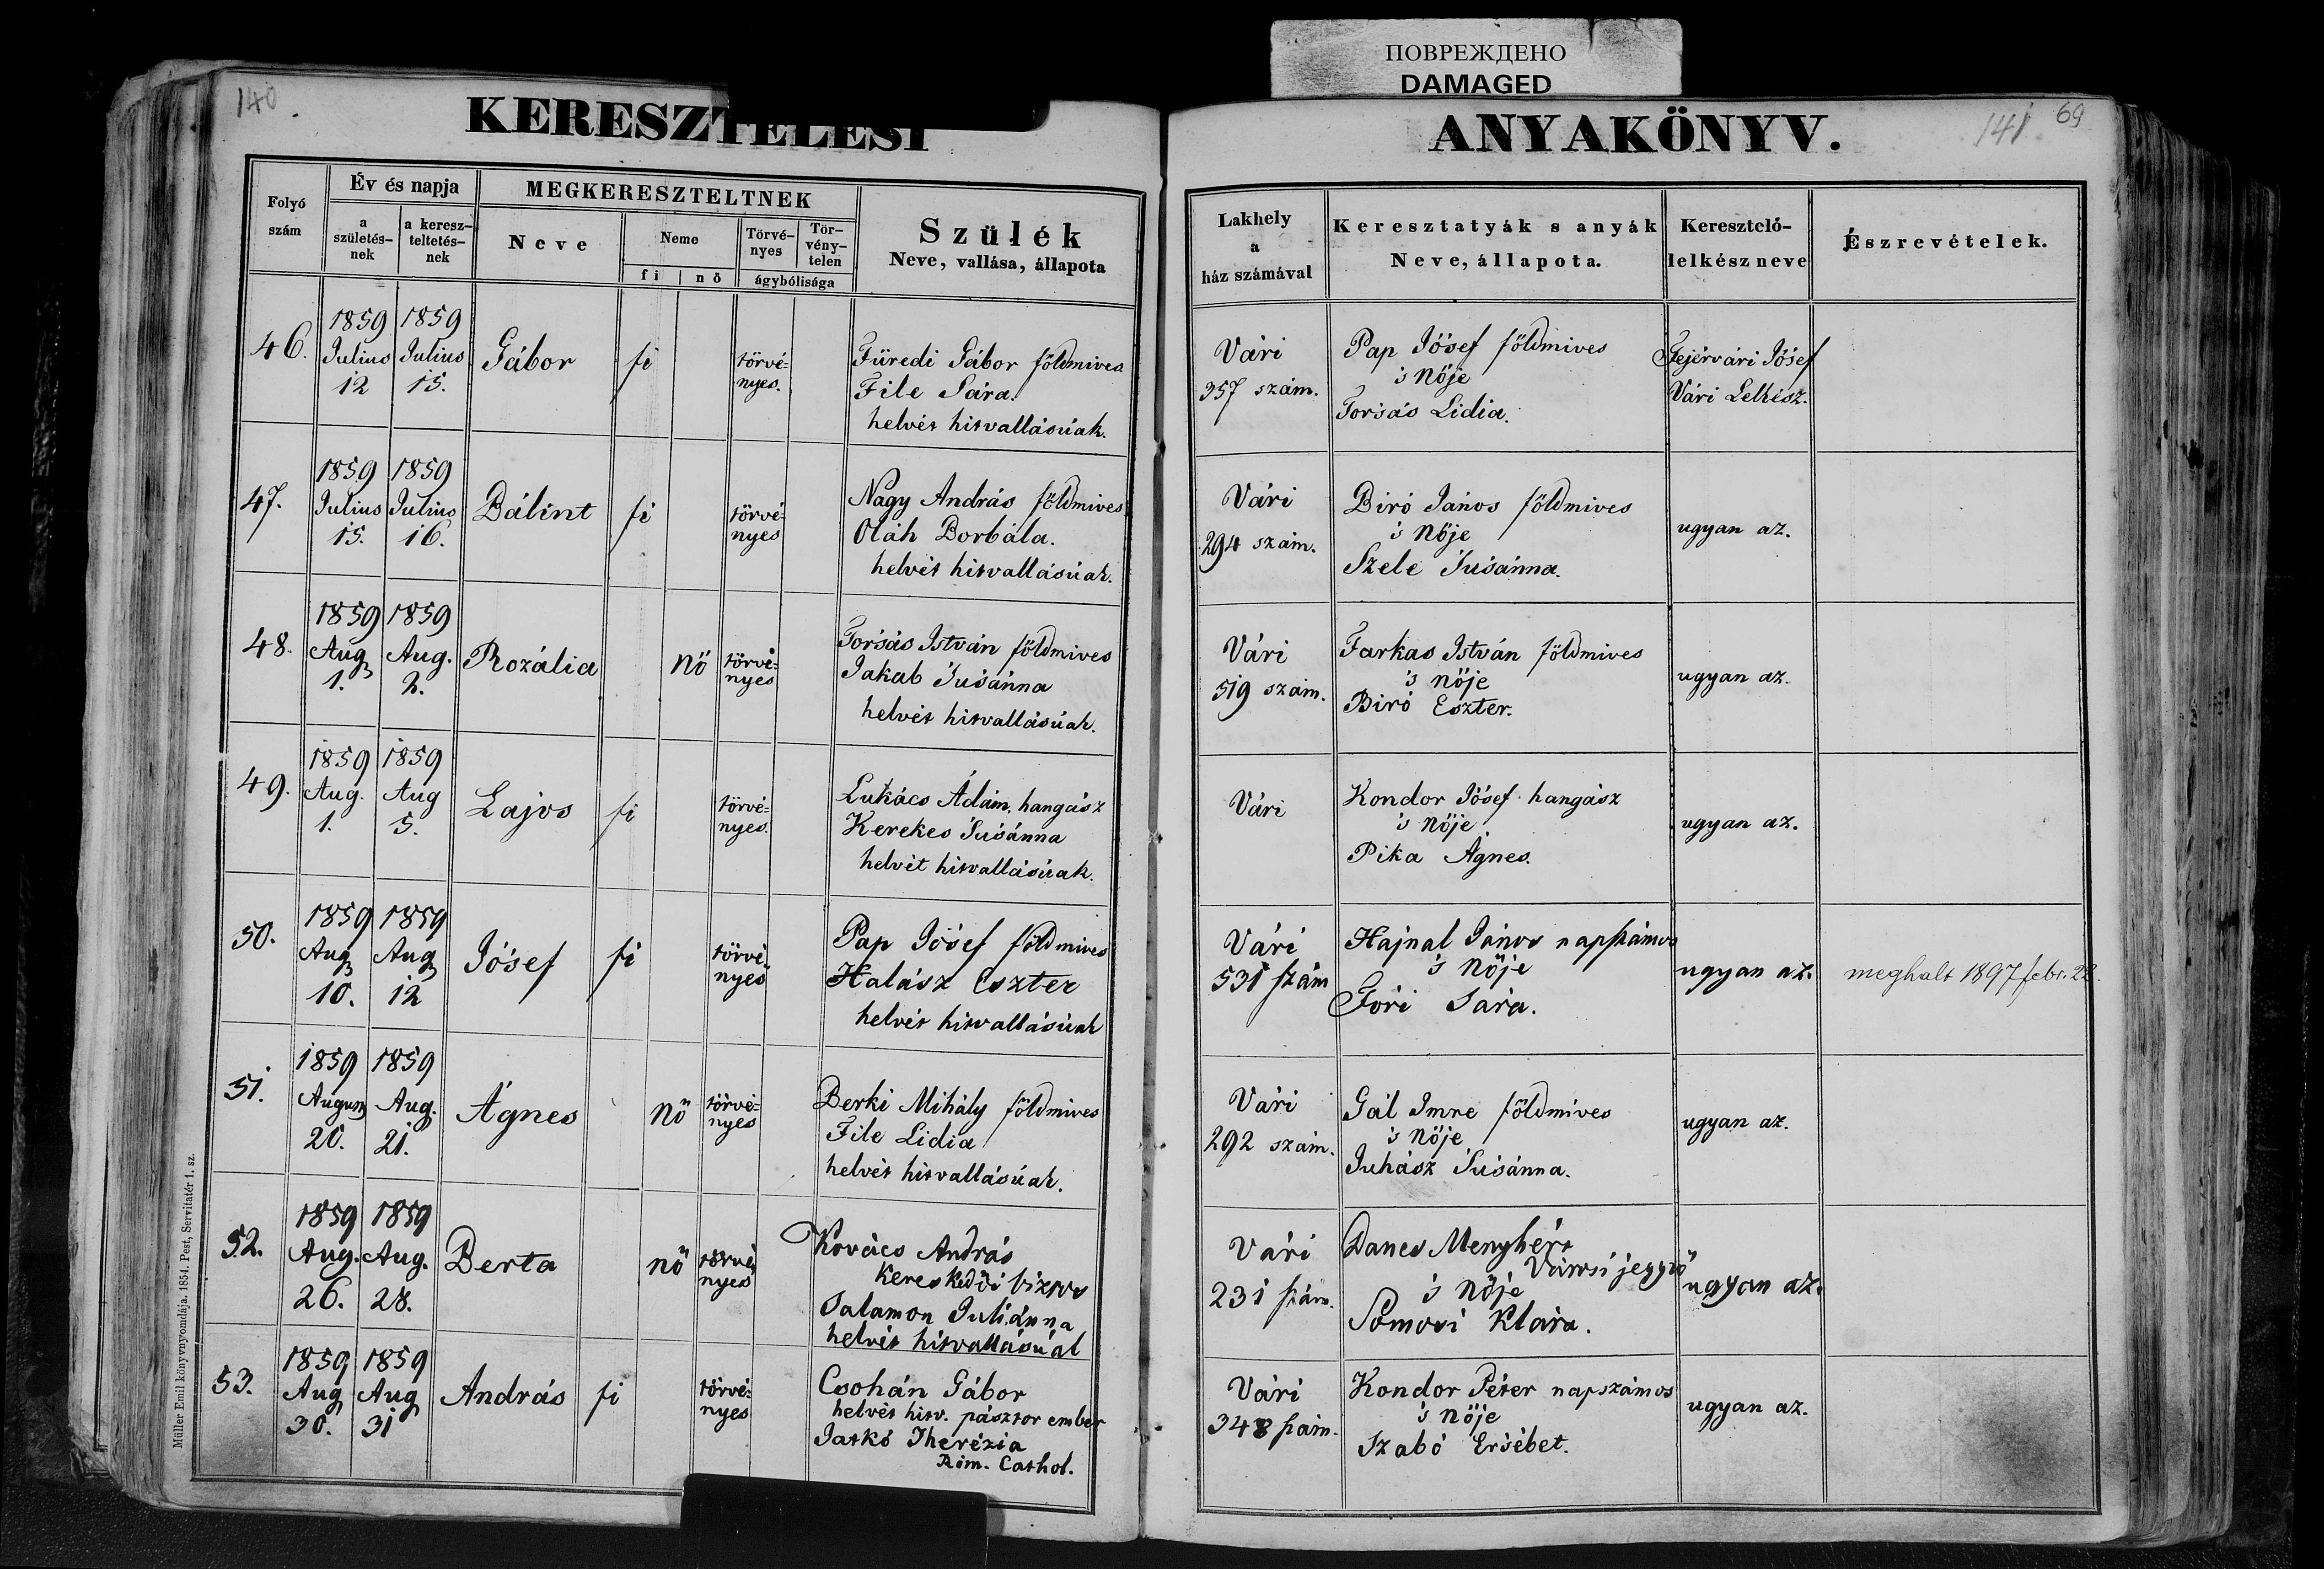 ПОВРЕЖДЕНО
DAMAGED
140
KERESZTELÉSI
ANYAKÖNYV.
141
69
Folyó szám
Év és napja
a születés-nek
a keresz-teltetés-nek
MEGKERESZTELTNEK
Neve
Neme
fi | nő
Törvé-nyes
Tör-vény-telen
ágybólisága
Szülék
Neve, vallása, állapota
Lakhely
a
ház számával
Keresztatyák s anyák
Neve, állapota.
Keresztelő-
lelkész neve
Észrevételek.
46.
1859 Julius 12
1859 Julius 15.
Gábor
fi
törvé=
nyes.
Füredi Gábor földmives
File Sára.
helvét hitvallásúak.
Vári
357 szám.
Pap Jósef földmives
's nöje
Forsás Lidia.
Fejérvári Jósef
Vári Lelkész.
47.
1859 Julius 15.
1859 Julius 16.
Bálint
fi
törvé=
nyes
Nagy András földmives
Oláh Borbála.
helvét hitvallásúak.
Vári
294 szám.
Biró János földmives
's nöje
Szele Susánna.
ugyan az.
48.
1859 Aug 1.
1859 Aug. 2.
Rozália
nö
törvé=
nyes
Forsás István földmives
Jakab Susánna
helvét hitvallásúak.
Vári
519 szám.
Farkas István földmives
's nöje
Biró Eszter.
ugyan az.
49.
1859 Aug. 1.
1859 Aug 5.
Lajos
fi
törvé=
nyes.
Lukács Ádám. hangász
Kerekes Susánna
helvét hitvallásúak.
Vári
Kondor Jósef hangász
's nöje
Pika Ágnes.
ugyan az.
50.
1859 Aug 10.
1859 Aug 12
Jósef
fi
törvé=
nyes
Pap Jósef földmives
Halász Eszter
helvét hitvallásúak
Vári
531 szám
Hajnal János napszámos
's nöje
Fóri Sára.
ugyan az.
meghalt 1897 febr. 22.
51.
1859 Augus 20.
1859 Aug. 21.
Ágnes
nö
törvé=
nyes
Berki Mihály földmives
File Lidia
helvét hitvallásúak.
Vári
292 szám.
Gál Imre földmives
's nöje
Juhász Susánna.
ugyan az.
52.
1859 Aug. 26.
1859 Aug. 28.
Berta
nö
törvé
nyes
Kovács András
kereskedői biztos
Salamon Juliánna
helvét hitvallásúak
Vári
231 szám.
Danes Menyhért
Városi jegyző
's nöje
Somosi Klára.
ugyan az.
53.
1859 Aug 30.
1859 Aug 31
András
fi
törvé=
nyes
Csohán Gábor
helvét hitv. pásztor ember
Jatkó Therézia
Róm. Cathol.
Vári
348 szám.
Kondor Péter napszámos
's nöje
Szabó Ersébet.
ugyan az.
Müller Emil könyvnyomdája. 1854. Pest, Servitatér 1. sz.